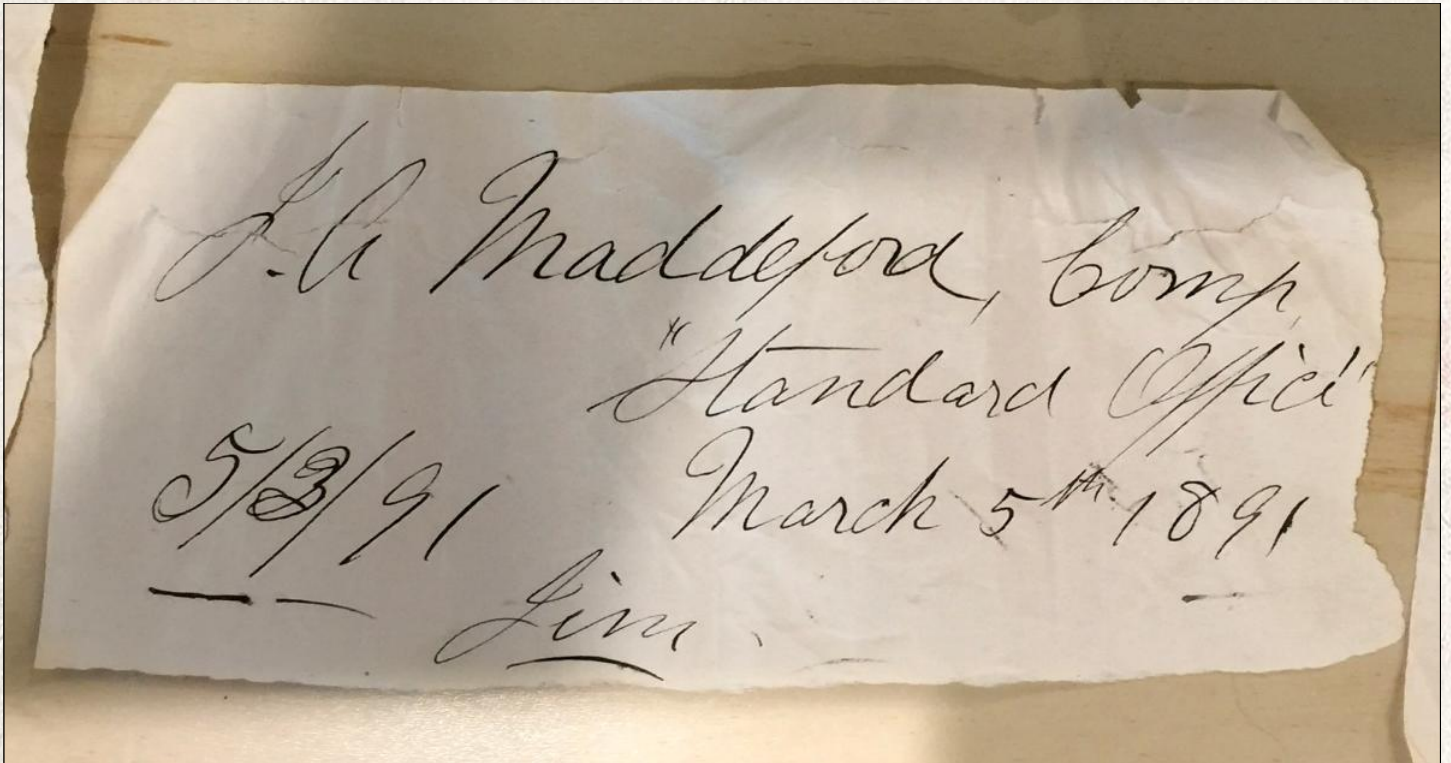 J. A Maddeford, Comp,
"Standard Office"
5/3/91 March 5th. 1891
Jim.